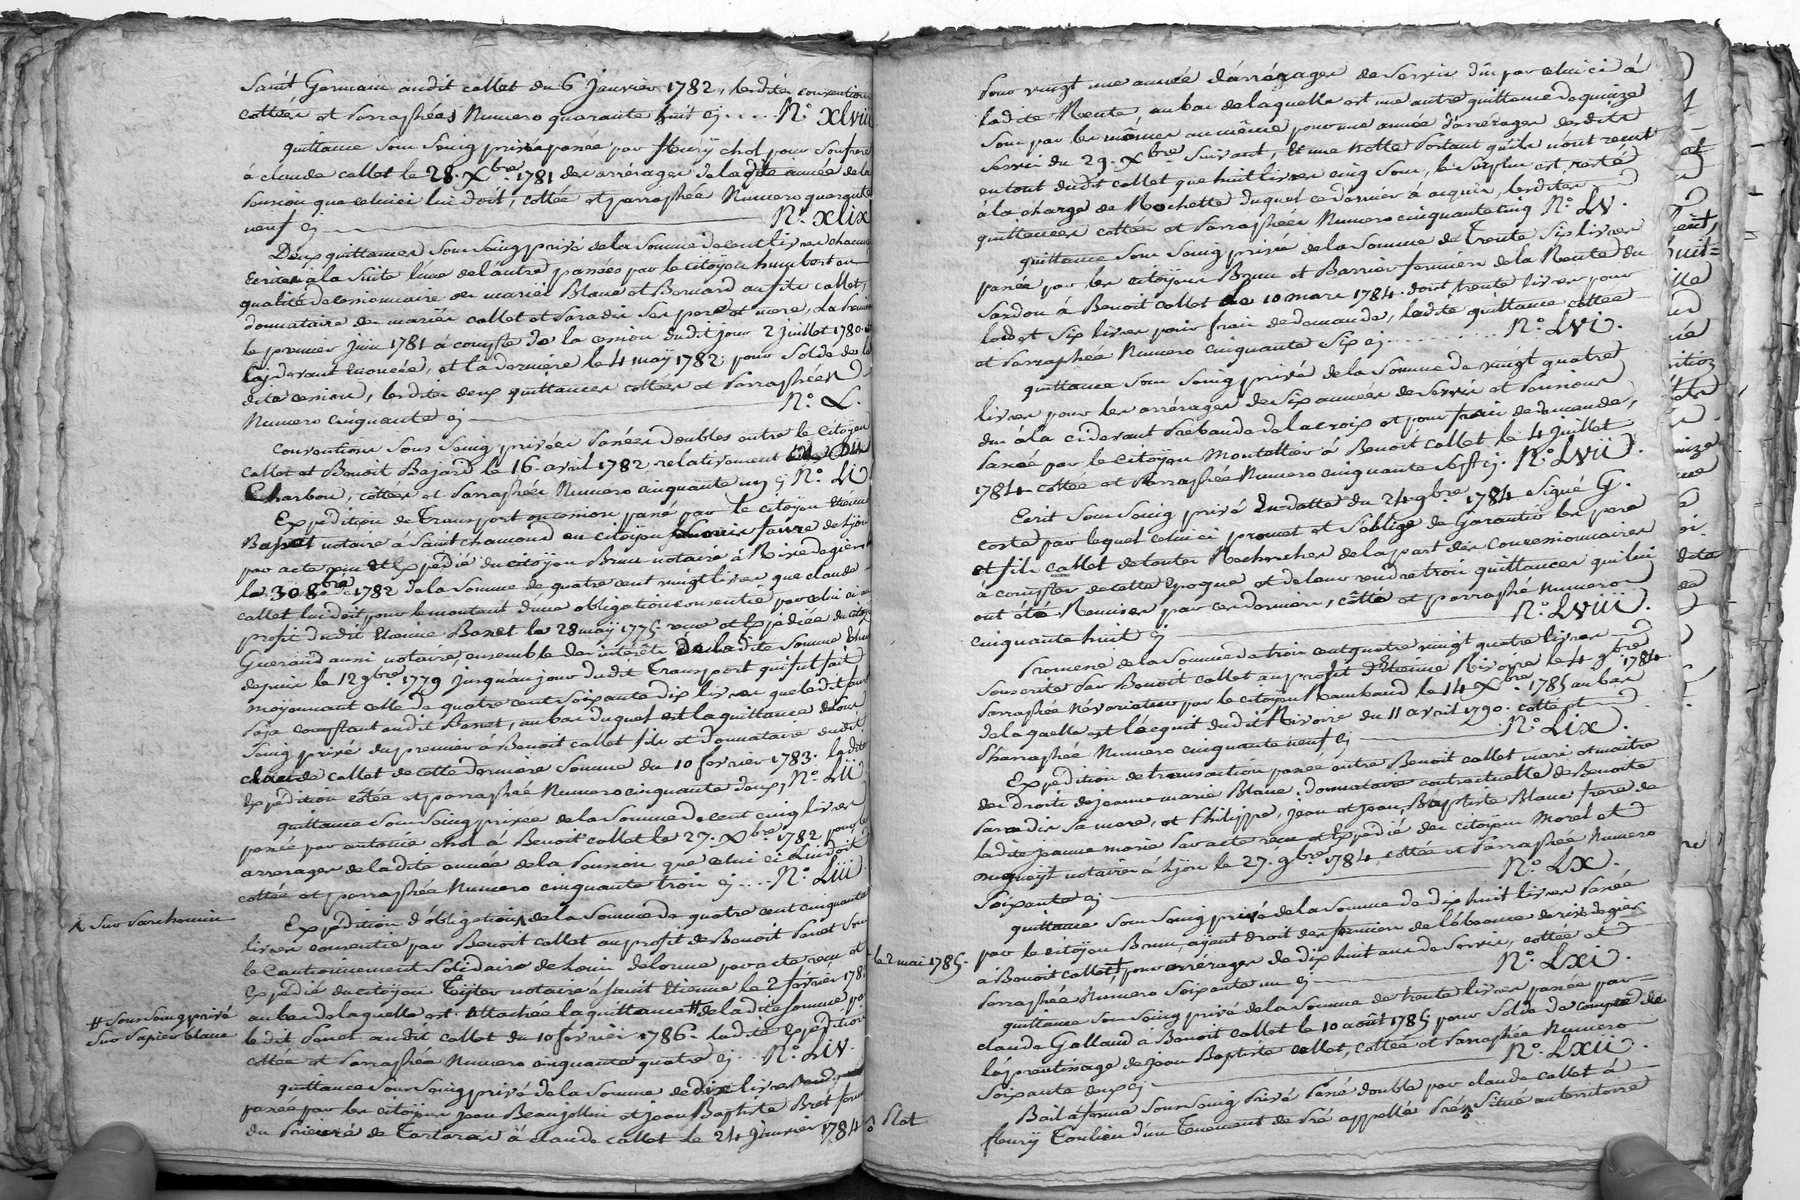 Saint Germain audit callet du 6 Janvier 1782, lesdites conventions
cottées et Parraphées Numero quarante huit cy.... N.º XLviii
quittance sous Seing privé passée par fleury chol pour son frere
à claude callet le 28. Xbre 1781 des arrérages de la dite année de la
Pension que celui ci lui doit, cottée et parraphée Numero quarante
neuf cy N.º XLix
Deux quittances Sous Seing privé de la Somme de cent livres chacune
Ecrites à la Suite l'une de l'autre passées par le citoyen humbert en
qualité de cessionnaire des mariés Blanc et Bernard au fils callet,
donnataire des mariés callet et Paradis ses pere et mere, La Premiere
le premier Juin 1781 à compte de la cession dudit jour 2 juillet 1780
cy devant énoncée, et la derniere le 4 may 1782, pour Solde de la
dite cession, lesdites deux quittances cottées et Parraphées
Numero cinquante cy N.º L.
Conventions sous Seing privées passées doubles entre le Citoyen
callet et Benoit Bajard le 16 avril 1782 relativement au
Charbon, cottées et Parraphées Numero cinquante un cy N.º Li
Expédition de Transport ou cession passé par le citoyen Etienne
Bonet notaire à Saint chamond au citoyen faure de Lyon
par acte reçu et Expédié du citoyen Brun notaire à Rive de gier
le 30 8bre 1782 de la Somme de quatre cent vingt livres que claude
callet lui doit pour le montant d'une obligation consentie par celui ci au
profit dudit Etienne Bonet le 28 may 1775 reçue et Expédiée du citoyen
Gueraud aussi notaire, ensemble des intérêts de la dite Somme
depuis le 12 9bre 1779 jusqu'au jour dudit Transport qui fut fait
moyennant celle de quatre cent Soixante dix livres que ledit faure
Paja comptant audit Bonet, au bas duquel est la quittance sous
Seing privé du premier à Benoit callet fils et donnataire dudit
claude callet de cette derniere Somme du 10 fevrier 1783. ladite
Expédition cotée et parraphée Numero cinquante deux, N.º Lii
quittance Sous Seing privée de la Somme de cent cinq livres
passée par antoine chol à Benoit callet le 27. Xbre 1782 pour les
arrerages de ladite année de la Pension que celui ci lui doit
cottée et parraphée Numero cinquante trois cy.... N.º Liii
Expédition d'obligation de la Somme de quatre cent cinquante
⁁ Sur Parchemin
livres consentie par Benoit callet au profit de Benoit Ponet sous
le Cautionnement Solidaire de Louis delorme par acte reçu et
Expédié du citoyen Teyter notaire à Saint Etienne le 2 février 1783
au bas de laquelle est Attachée la quittance # de ladite somme par
# sous seing privé
sur Papier blanc
ledit Ponet audit callet du 10 fevrier 1786. ladite Expédition
cottée et Parraphée Numero cinquante quatre cy... N.º LIV.
quittance sous seing privé de la Somme de dix livres
passée par les citoyens jean Beaujollin et jean Baptiste Bret fermiers
du Prieuré de Tartaras à claude callet le 24 Janvier 1784
Pour vingt une année d'arrérages de Servis dûs par celui ci à
ladite Rente, au bas de laquelle est une autre quittance de quinze
Sous par les mêmes au même pour une année d'arrérages desdits
Servis du 29. Xbre Suivant, Et une notte Portant qu'ils n'ont reçut
en tout dudit callet que huit livres cinq Sous, le Surplus est resté
à la charge de Rochette duquel ce dernier à acquis, lesdites
quittances cottées et Parraphées Numero cinquante cinq N.º LV.
quittance Sous Seing privé de la Somme de Trente Six livres
passée par les citoyens Brun et Barrier fermiers de la Rente du
Sardon à Benoit callet le 10 mars 1784. dont trente livres pour
lods et Six livres pour frais de demande, ladite quittance cottée
et Parraphée Numero cinquante Six cy.......... N.º Lvi.
quittance sous Seing privé de la Somme de vingt quatre
livres pour les arrérages de Six années de Servis et Pensions
dus à la ci devant Prebande de la croix et pour frais de demande,
Passée par le Citoyen Montellier à Benoit callet le 4 Juillet
1784 cottée et Parraphée Numero cinquante Sept cy. N.º Lvii.
Ecrit Sous Seing privé En datte du 24 9bre 1784 Signé G.
coste par lequel celui ci promet et S'oblige de Garantir les pere
et fils callet de toutes Recherches de la part des Concessionnaires
à compter de cette Epoque et de leur rendre trois quittances qui lui
ont été Remises par ces derniers, côtté et parraphé Numero
cinquante huit cy N.º Lviii.
Promesse de la Somme de trois cent quatre vingt quatre livres
Souscrite Par Benoit Callet au profit d'Etienne Rivoire le 4 9bre 1784
Parraphée Nevarietur par le citoyen Rambaud le 14 Xbre 1785 au bas
de laquelle est l'acquit dudit Rivoire du 11 avril 1790. cotté et
Pharraphée Numero cinquante neuf cy N.º Lix.
Expédition de transaction passée entre Benoit callet mari et maitre
des droits de jeanne marie Blanc, donnataire contractuelle de Benoite
Paradis Sa mere, et Philippe, jean et jean Baptiste Blanc frere de
ladite jeanne marie Par acte reçu et Expédié des citoyens Morel et
notaires à Lyon le 27. 9bre 1784, cottée et Parraphée Numero
Soixante cy N.º LX.
quittance Sous Seing privé de la Somme de dix huit livres Passée
par le citoyen Brun, ayant droit des fermiers de l'abeance de rive de gier
à Benoit callet + pour arrérages de dix huit ans de Servis, cottée et
+ le 2 mai 1785.
Parraphée Numero Soixante un cy N.º Lxi.
quittance Sous Seing privé de la Somme de trente livres passée par
claude Galland à Benoit callet le 10 août 1785 pour Solde de compte de
l'aprentissage de Jean Baptiste callet, cottée et Parraphée Numero
Soixante deux cy N.º Lxii.
Bail à ferme Sous Seing Privé Passé double par claude callet à
fleury Toulieu d'un Tenement de Pré appellé Prés Situé au territoire
à Plot